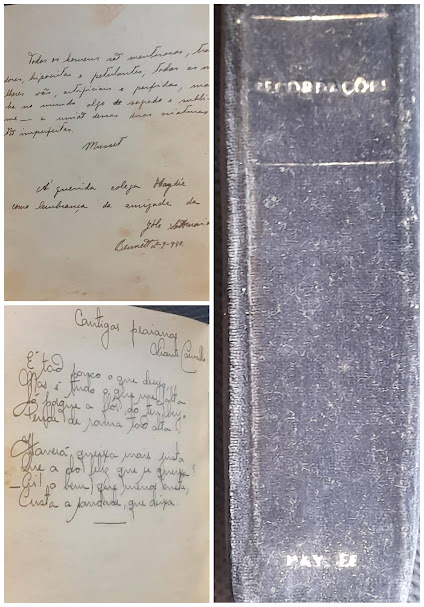 Todos os homens são mentirosos, trai
dores, hipocritas e petulantes, todas as m
lheres vãs, artificiosas e perfidas, mas
ha no mundo algo de sagrado e subli
me — a união desses duas creaturas
tão imperfeitas.
Musset
A' querida colega Haydée
como lembrança da amizade da
Yole
Bennett 2-9-940.
Cantigas praianas
Vicente Carvalho
E' tão pouco o que desejo,
Mas é tudo o que me falta
Só porque a flor do teu beijo
Pende de rama tão alta!
Haverá queixa mais justa
Que a do feliz que se queixa?
— Ai! o bem que menos custa,
Custa a saudade que deixa.
RECORDAÇÕES
HAYDÉE